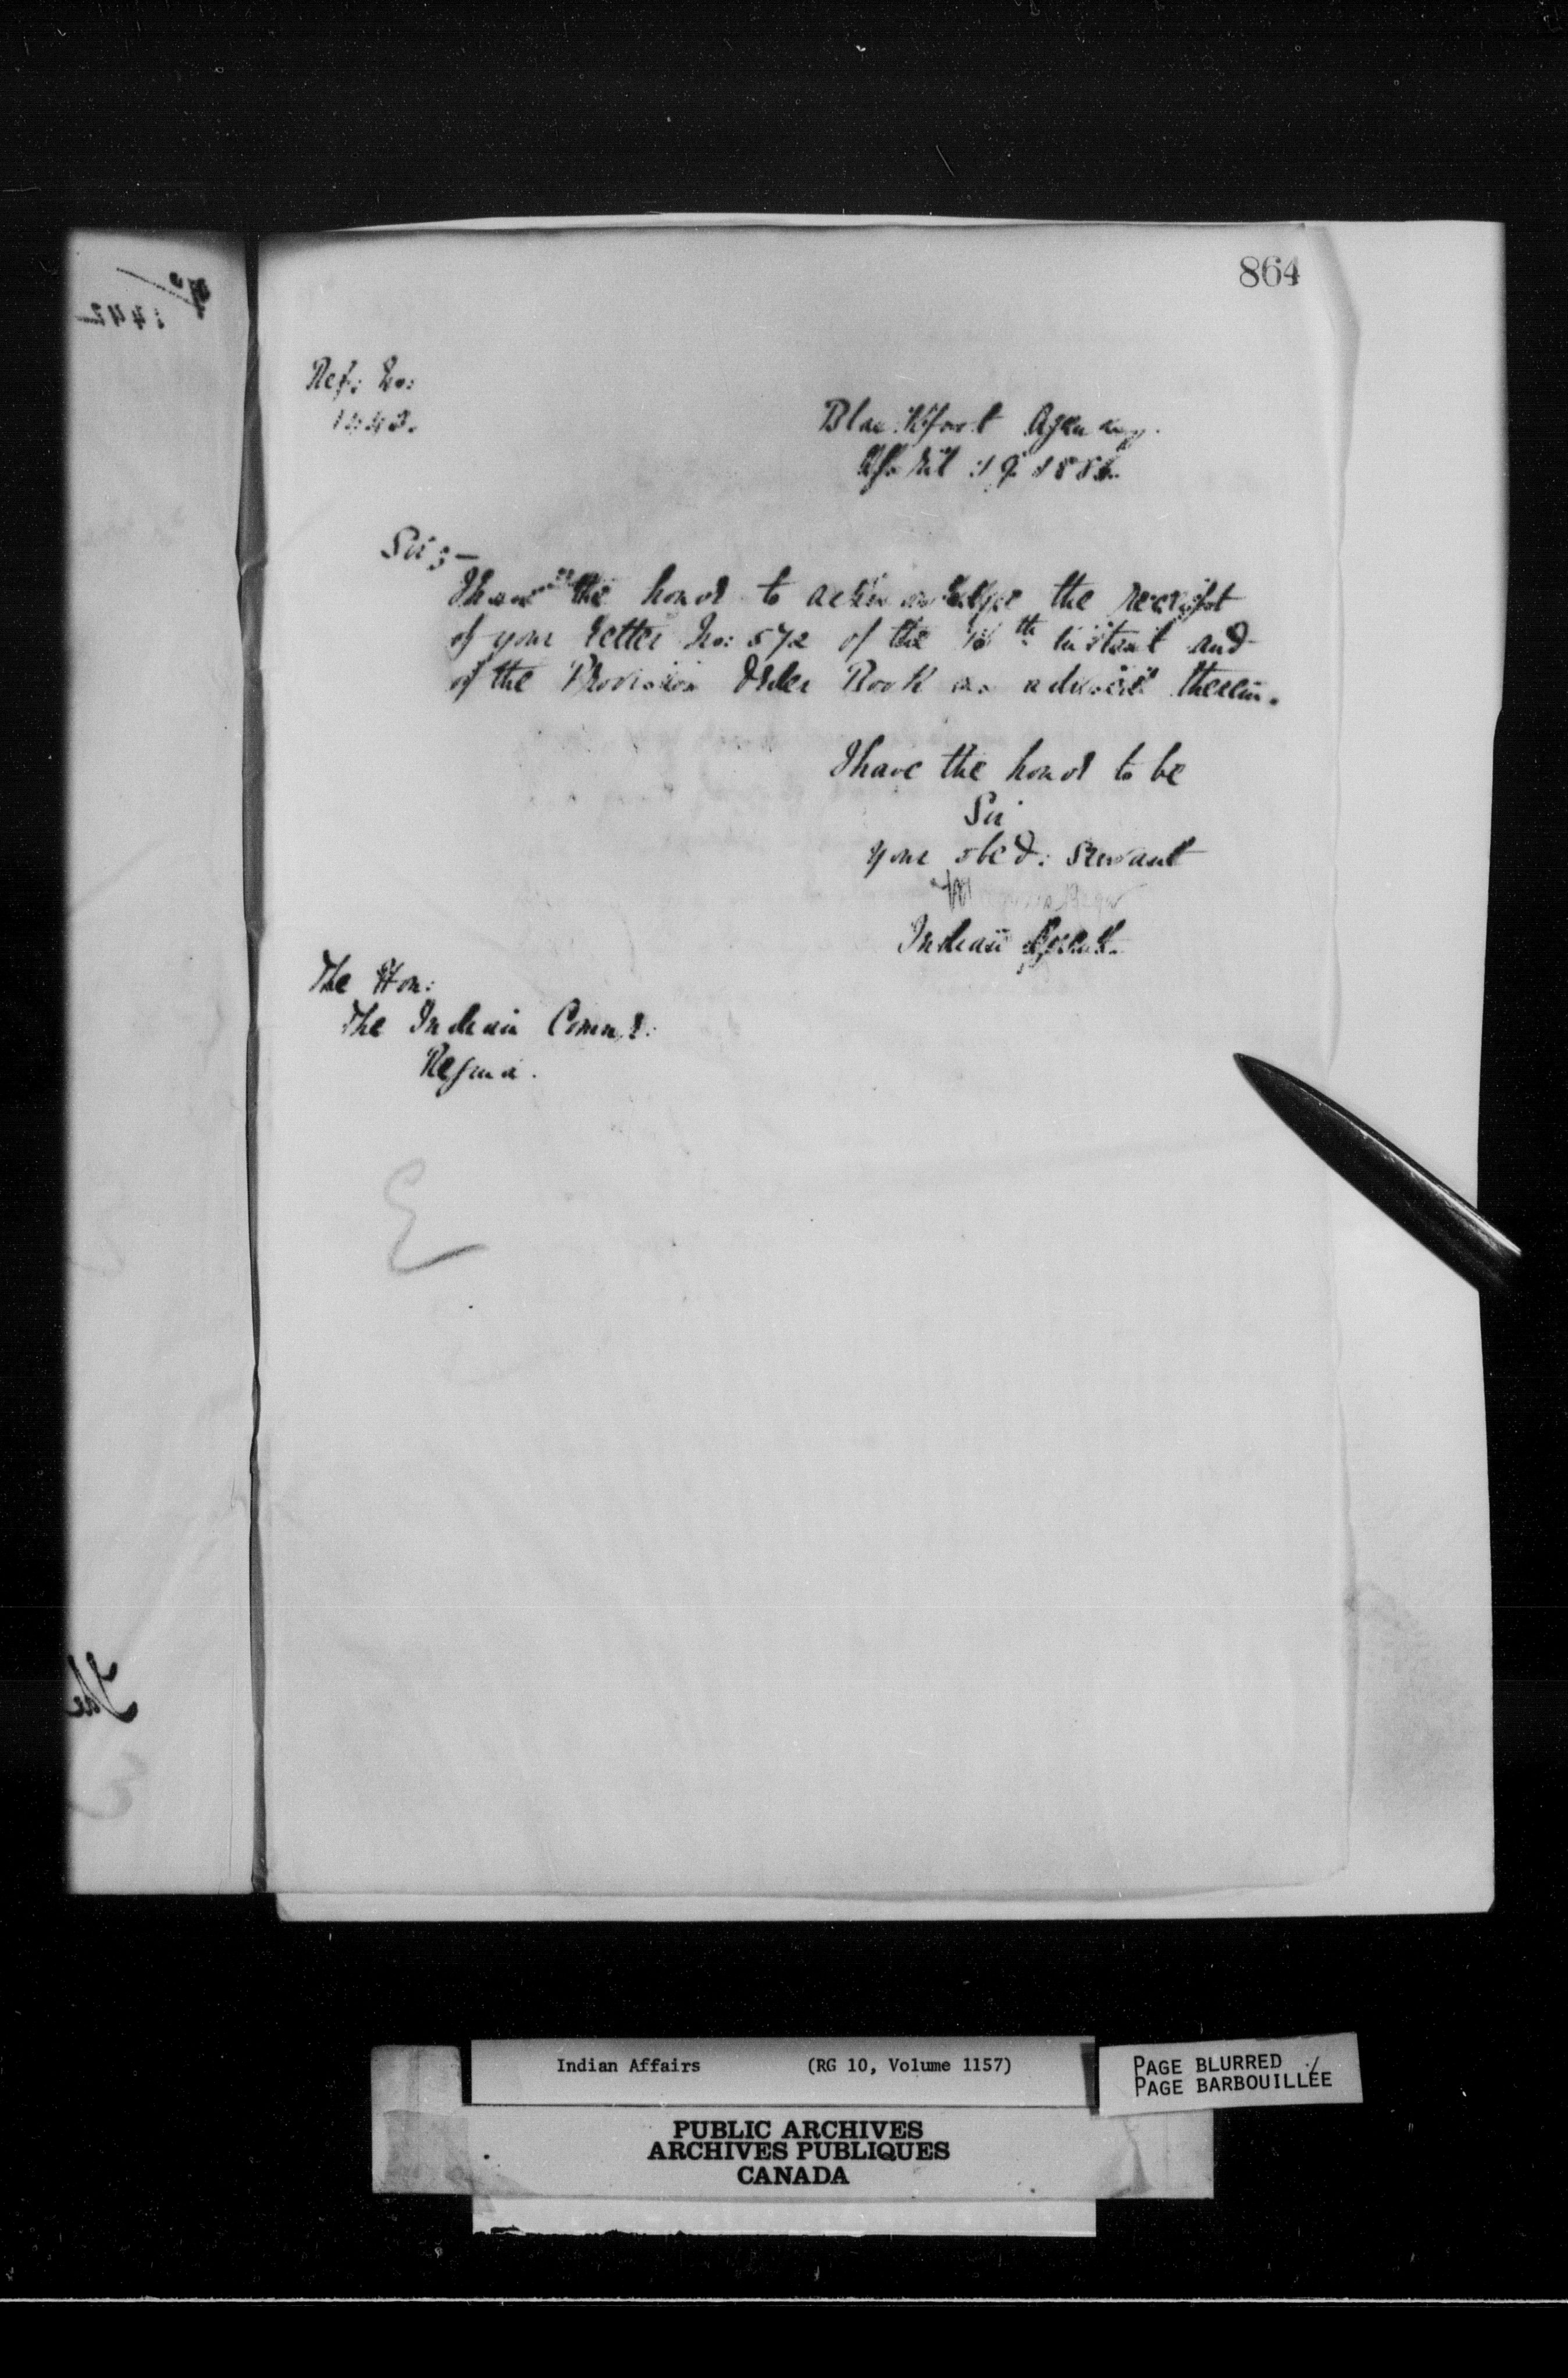 864
Ref: No:
1443.
Blackfoot Agency.
April 19. 1886.
Sir,—
I have the honor to acknowledge the receipt
of your letter No: 572 of the th instant and
of the Provision Order Book as advised therein.
I have the honor to be
Sir
your obed: servant
Indian Agent.
The Hon:
The Indian Commr:
Regina.
No
1442
The
Indian Affairs (RG 10, Volume 1157)
PAGE BLURRED
PAGE BARBOUILLÉE
PUBLIC ARCHIVES
ARCHIVES PUBLIQUES
CANADA